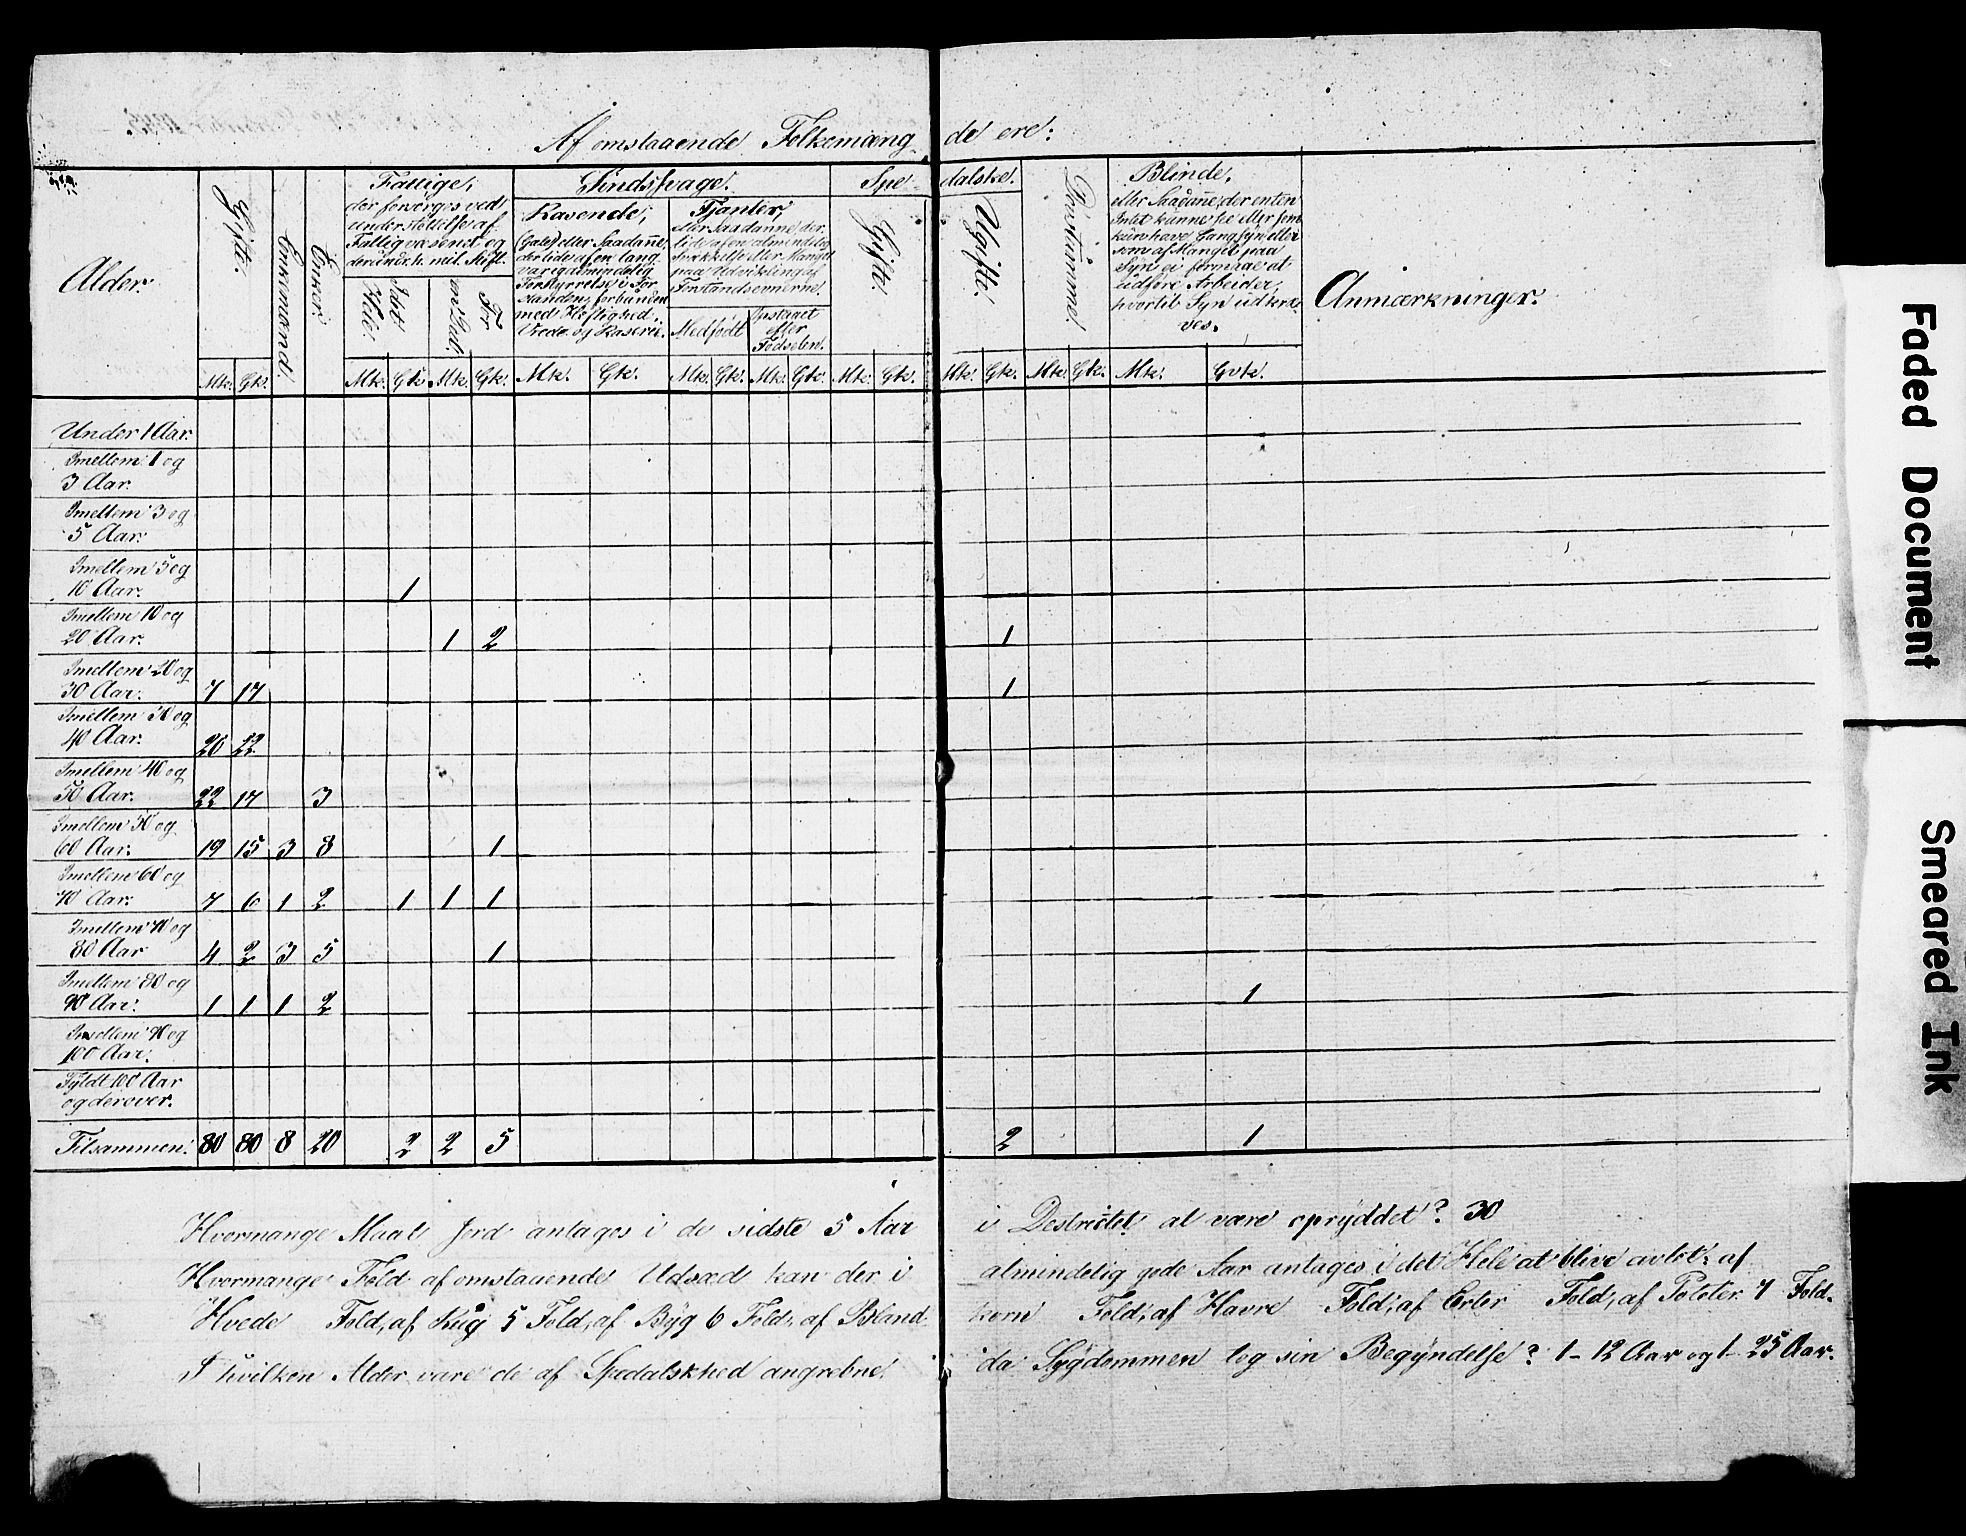 Af omstaaende Folkemæng de ere:
Alder.
Gifte.
Enkemænd.
Enker.
Fattige,
der forsørges ved
understöttelse af
Fattigvæsenet og
Idet Hele.
en Deel.
Sindssvage.
Rasende,
(Gale) eller Saadanne,
der lide af en lang
varig almindelig
Forstyrrelse i For
standen, forbunden
med Heftighed,
Vrede og Raseri.
Fjanter,
eller Saadanne, der
lide af en almindelig
Svækkelse eller Mangel
paa Udvikling af
Forstandsevnerne.
Medfødt
Opstaaet
efter
Fødselen.
Spe dalske.
Gifte.
Ugifte.
Døvstumme.
Blinde,
eller Saadanne, der enten
Intet kunne see eller som
kun have Langsyn eller
som af Mangel paa
Syn ei formaae at
udføre Arbeider,
hvortil Syn udkræ
ves.
Anmærkninger.
Mk. Gk. Mk. Gk. Mk. Gk. Mk. Gk. Mk. Gk. Mk. Gk. Mk. Gk. Mk. Gk. Mk. Gk. Mk. Gvk.
Under 1 Aar.
Imellem 1 og
3 Aar.
Imellem 3 og
5 Aar.
Imellem 5 og
10 Aar. 1
Imellem 10 og
20 Aar. 1 2 1
Imellem 20 og
30 Aar. 7 17 1
Imellem 30 og
40 Aar. 20 22
Imellem 40 og
50 Aar. 22 17 3
Imellem 50 og
60 Aar. 19 15 3 8 1
Imellem 60 og
70 Aar. 7 6 1 2 1 1 1
Imellem 70 og
80 Aar 4 2 3 5 1
Imellem 80 og
90 Aar. 1 1 1 2 1
Imellem 90 og
100 Aar.
Fyldt 100 Aar
og derover.
Tilsammen. 80 80 8 20 2 2 5 2 1
Hvormange Maal Jord antages i de sidste 5 Aar i Destrictet at være opryddet? 30
Hvormange Fold af omstaaende Udsæd kan der i almindelig gode Aar antages i det Hele at blive avlet: af
Hvede Fold, af Rug 5 Fold, af Byg 6 Fold, af Bland korn Fold, af Havre Fold, af Erter Fold, af Poteter 7 Fold.
I hvilken Alder vare de af Spedalskhed angrebne, da Sygdommen tog sin Begyndelse? 1 - 12 Aar og 1 - 25 Aar.
Faded Document
Smeared Ink